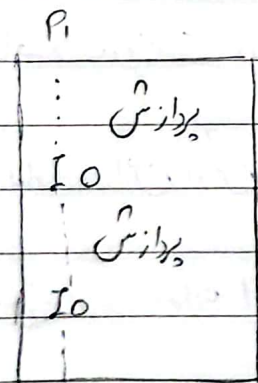 P1
پردازش
IO
پردازش
IO